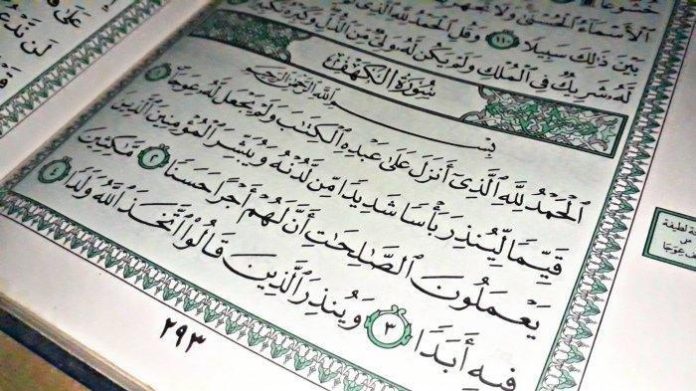 ٱلْأَسْمَآءُ ٱلْحُسْنَىٰ وَلَا تَجْهَرْ
بَيْنَ ذَٰلِكَ سَبِيلًا ١١٠ وَقُلِ ٱلْحَمْدُ لِلَّهِ ٱلَّذِى
لَّهُۥ شَرِيكٌ فِى ٱلْمُلْكِ وَلَمْ يَكُن لَّهُۥ وَلِىٌّ مِّنَ ٱلذُّلِّ وَكَبِّرْهُ
سُورَةُ الْكَهْفِ
بِسْمِ ٱللَّهِ ٱلرَّحْمَٰنِ ٱلرَّحِيمِ
ٱلْحَمْدُ لِلَّهِ ٱلَّذِىٓ أَنزَلَ عَلَىٰ عَبْدِهِ ٱلْكِتَٰبَ وَلَمْ يَجْعَل لَّهُۥ عِوَجَا ١
قَيِّمًا لِّيُنذِرَ بَأْسًا شَدِيدًا مِّن لَّدُنْهُ وَيُبَشِّرَ ٱلْمُؤْمِنِينَ ٱلَّذِينَ
يَعْمَلُونَ ٱلصَّٰلِحَٰتِ أَنَّ لَهُمْ أَجْرًا حَسَنًا ٢ مَّٰكِثِينَ
فِيهِ أَبَدًا ٣ وَيُنذِرَ ٱلَّذِينَ قَالُوا۟ ٱتَّخَذَ ٱللَّهُ وَلَدًا ٤
٢٩٣
لطيفة
عِوَجَا